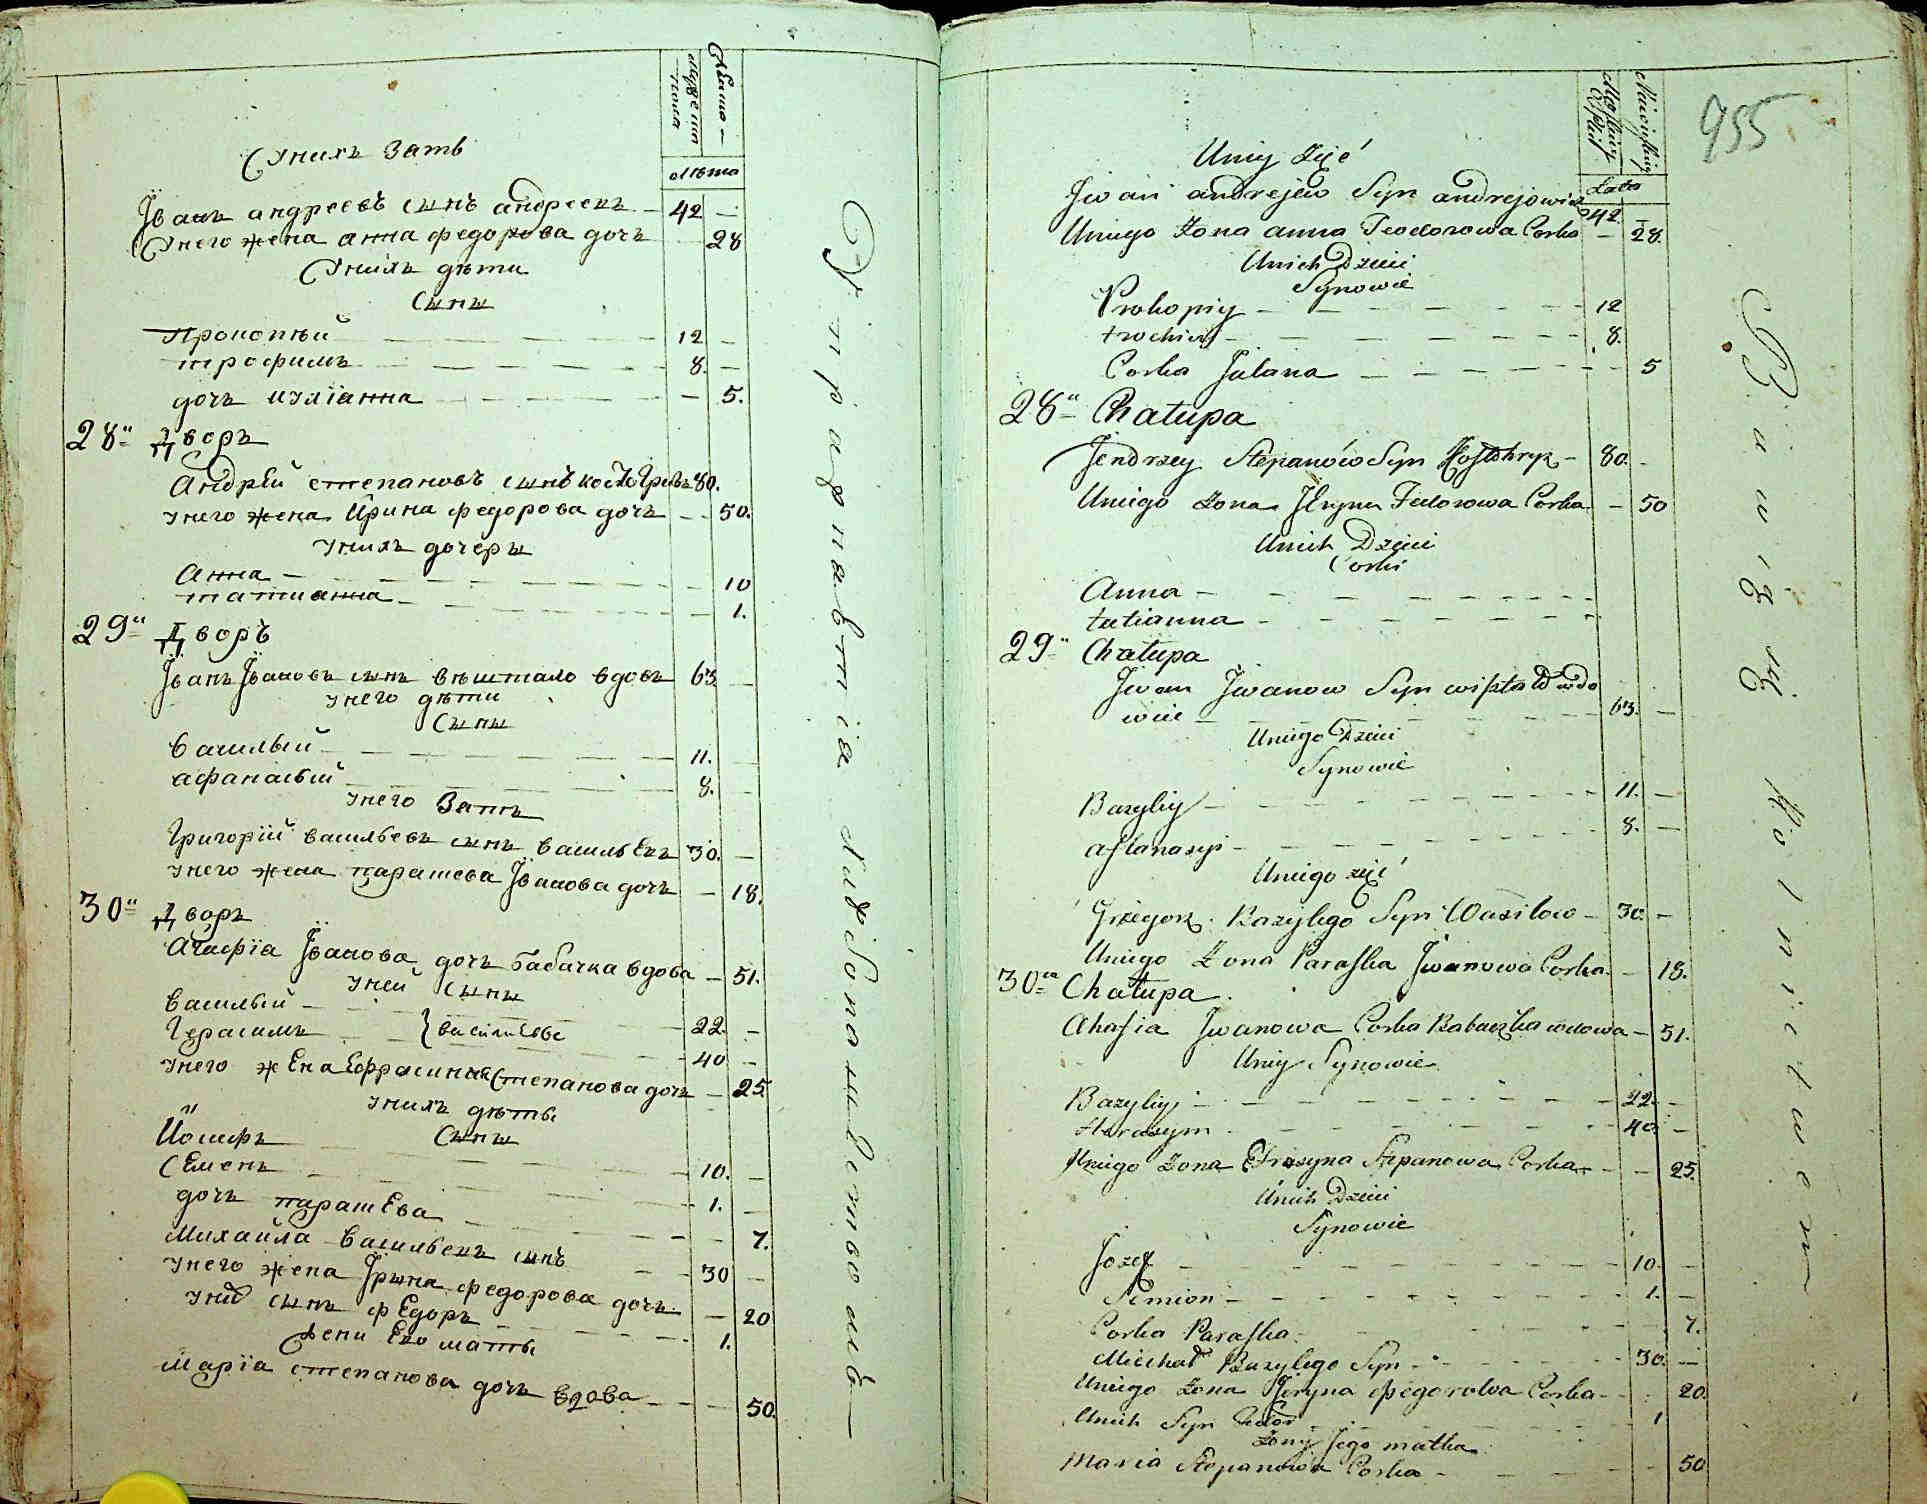 Мужеска пола
Женска
Лѣта
Унихъ Зать
Іванъ андреевъ сынъ андреевъ - 42 -
Унего жена анна федорова дочь 28
Унихъ дѣти
Сыны
Прокопѣй 12 -
трофимъ 8. -
дочь иулїанна - 5.
28а Дворъ
Андрѣй степановъ сынъ 80.
Унего жена Ирина федорова дочь - 50.
Унихъ дочеры
Анна - 10
татианна - 1.
29а Дворъ
Іванъ Івановъ сынъ вѣштало вдовъ 63 -
Унего дѣти
Сыны
василѣй 11. -
афанасѣй 8. -
Унего Зать
Григорїй васильевъ сынъ васильевъ 30. -
Унего жена парашева Іванова дочь - 18.
30а Дворъ
Агафїа Іванова дочь бабачка вдова - 51.
Уней Сыны
василѣй 22. -
Герасимъ } василѣевы 40 -
Унего жена Ефросиния Степанова дочь - 25
Унихъ дѣты
Сыны
Иосифъ 10. -
Семенъ 1. -
дочь парашева - 7.
михайла васильевъ сынъ 30 -
Унего жена Ірына федорова дочь - 20
Уних сынъ федоръ 1.
жены Его маты
марїа степанова дочь вдова - 50.
955
Lata
Uniy Zięć
Jwan andrejew Syn andrejowicz 42 -
Uniego Żona anna Teodorowa Corka - 28.
Unich Dzieci
Synowie
Prokopiy - 12
trochim - 8.
Corka Julana - 5
28a Chałupa
Jendrzey Stepanów Syn 80. -
Uniego Żona Jlryna Fedorowa Corka - 50
Unich Dzieci
Corki
Anna -
tatianna -
29 Chałupa
Jwan Jwanow Syn wiształo wdo
wiec - 63. -
Uniego Dzieci
Synowie
Bazyliy - 11. -
aftanasyi - 8. -
Uniego zięć
Grzegorz Bazylego Syn Wasilow - 30 -
Uniego Żona Paraska Jwanowa Corka - 18.
30a Chałupa.
Ahafia Jwanowa Corka Babaczka wdowa - 51.
Uniy Synowie
Bazyliy - 22. -
Harasym - 40 -
Uniego Żona Efrozyna Stepanowa Corka - 25.
Unich Dzieci
Synowie
Jozef - 10. -
Semion - 1. -
Corka Paraska - 7.
Michał Bazylego Syn - 30. -
Uniego Żona Jeryna Fedorowa Corka - 20.
Unich Syn Fedor - 1
Żony Jego matka
Maria Stepanowa Corka - 50